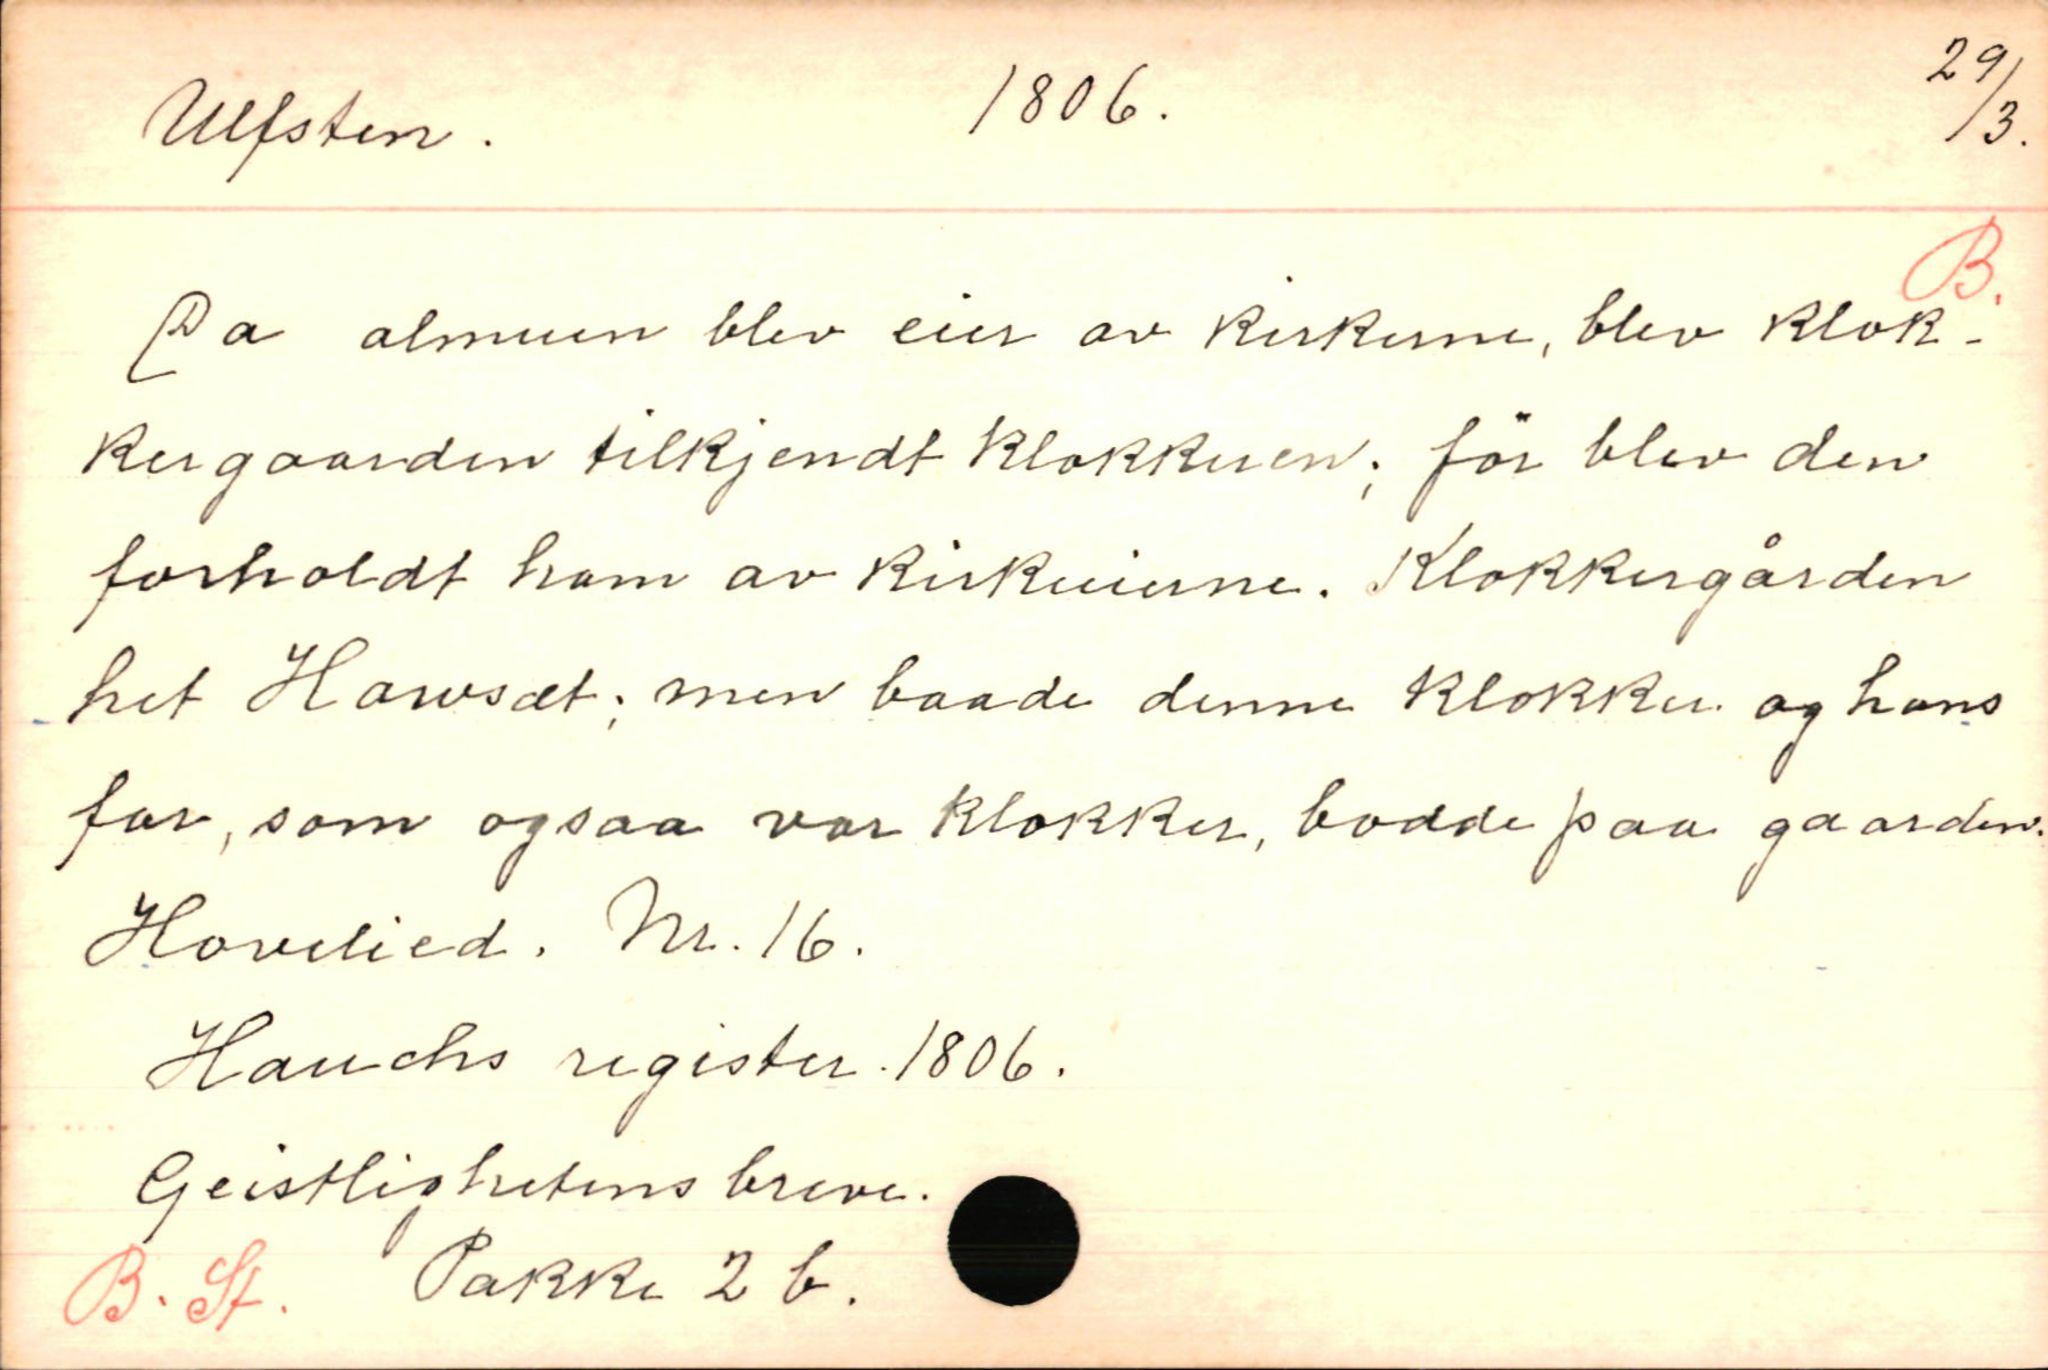 Ulfsten. 1806. 29/3.
B.
Da almuen blev eier av kirkerne, blev klok-
kergaarden tilkjendt klokkeren; för blev den
forholdt ham av kirkeeierne. Klokkergården
het Hawsæt; men baade denne klokker og hans
far, som ogsaa var klokker, bodde paa gaarden
Hovelied. Nr. 16.
Hauchs register. 1806.
Geistlighetens breve.
B. St. Pakke 2 b.